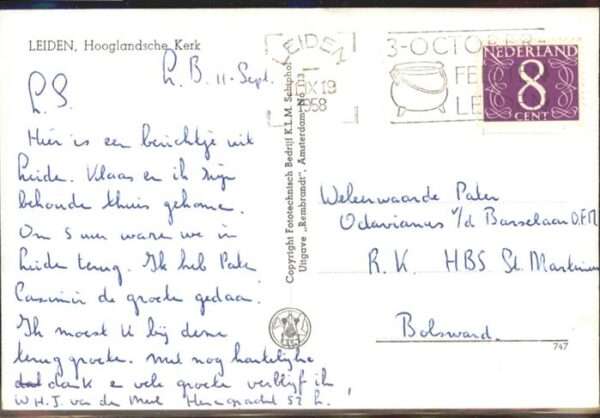 LEIDEN, Hooglandsche Kerk
L.B. 11-Sept.
L. S.
Hier is een berichtje uit
Leiden. Klaas en ik zijn
behouden thuis gekomen.
Om 5 uur waren we in
Leiden terug. Ik heb Pater
Casimir de groeten gedaan.
Ik moest U bij deze
terug groeten. Met nog hartelijke
dank en vele groeten verblijf ik,
W.H.J. van der
Copyright Fototechnisch Bedrijf K.L.M. Schiphol
Uitgave „Rembrandt”, Amsterdam No 13
LEIDEN
IX 19
1958
3-OCTOBER
FE
LE
NEDERLAND
8
CENT
Weleerwaarde Pater
Octavianus v/d Basselaar O.F.M.
R.K. HBS St. Martinus
Bolsward.
747